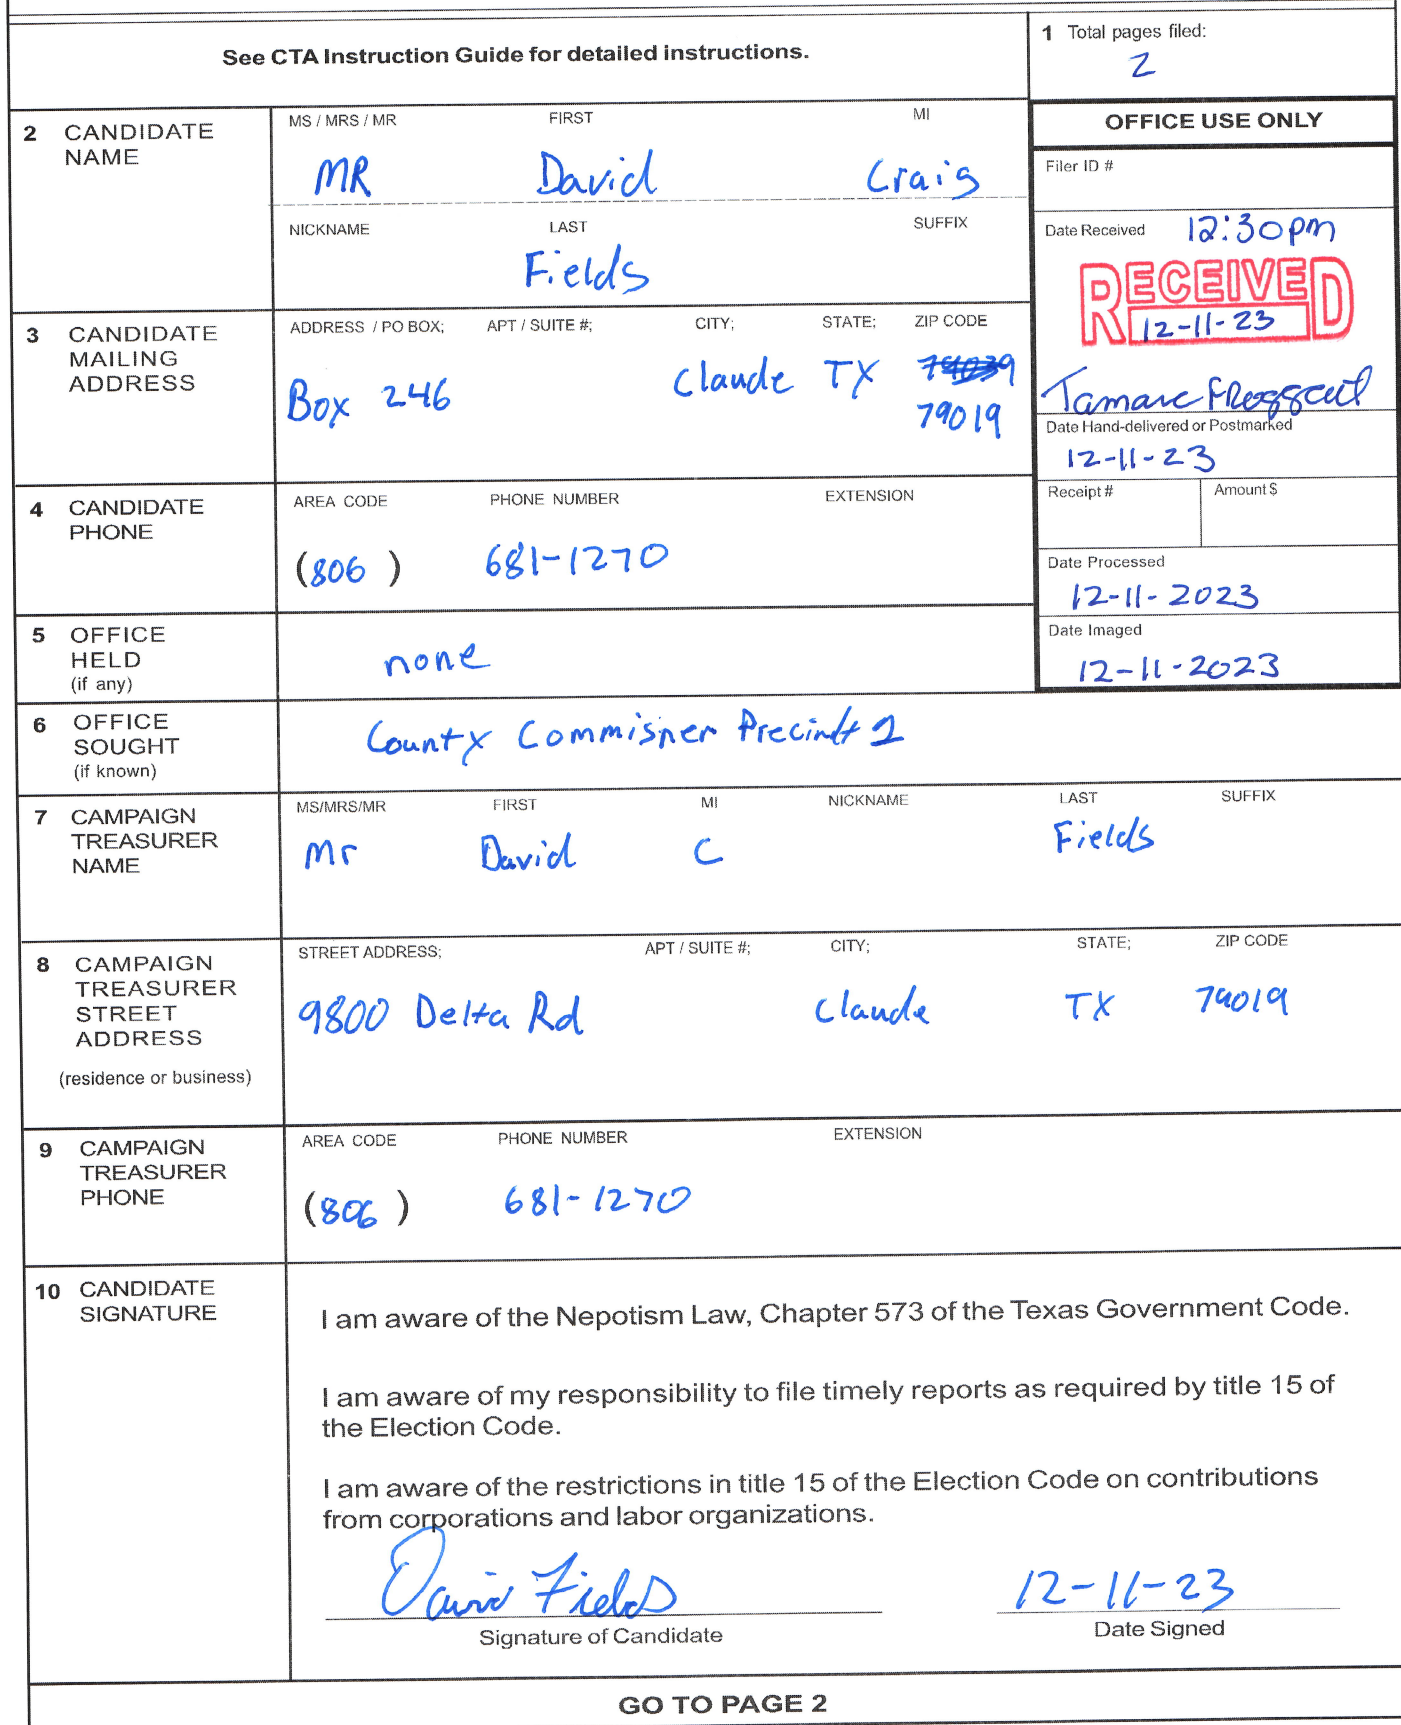 See CTA Instruction Guide for detailed instructions.
1 Total pages filed:
2
OFFICE USE ONLY
Filer ID #
Date Received 12:30pm
RECEIVED
12-11-23
Date Hand-delivered or Postmarked
12-11-23
Receipt # Amount $
Date Processed
12-11-2023
Date Imaged
12-11-2023
2 CANDIDATE NAME
MS / MRS / MR FIRST MI
MR David Craig
NICKNAME LAST SUFFIX
Fields
3 CANDIDATE MAILING ADDRESS
ADDRESS / PO BOX; APT / SUITE #; CITY; STATE; ZIP CODE
Box 246 Claude TX
79019
4 CANDIDATE PHONE
AREA CODE PHONE NUMBER EXTENSION
(806) 681-1270
5 OFFICE HELD (if any)
none
6 OFFICE SOUGHT (if known)
County Commisner Precinct 1
7 CAMPAIGN TREASURER NAME
MS/MRS/MR FIRST MI NICKNAME LAST SUFFIX
Mr David C Fields
8 CAMPAIGN TREASURER STREET ADDRESS
(residence or business)
STREET ADDRESS; APT / SUITE #; CITY; STATE; ZIP CODE
9800 Delta Rd Claude TX 79019
9 CAMPAIGN TREASURER PHONE
AREA CODE PHONE NUMBER EXTENSION
(806) 681-1270
10 CANDIDATE SIGNATURE
I am aware of the Nepotism Law, Chapter 573 of the Texas Government Code.
I am aware of my responsibility to file timely reports as required by title 15 of
the Election Code.
I am aware of the restrictions in title 15 of the Election Code on contributions
from corporations and labor organizations.
David Fields 12-11-23
Signature of Candidate Date Signed
GO TO PAGE 2